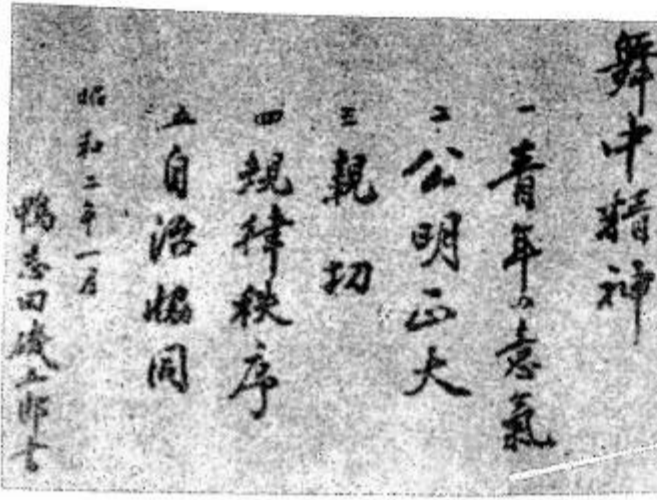 舞中精神
一青年の意氣
二公明正大
三親切
四規律秩序
五自治協同
昭和二年一月
鴨志田磯五郎書